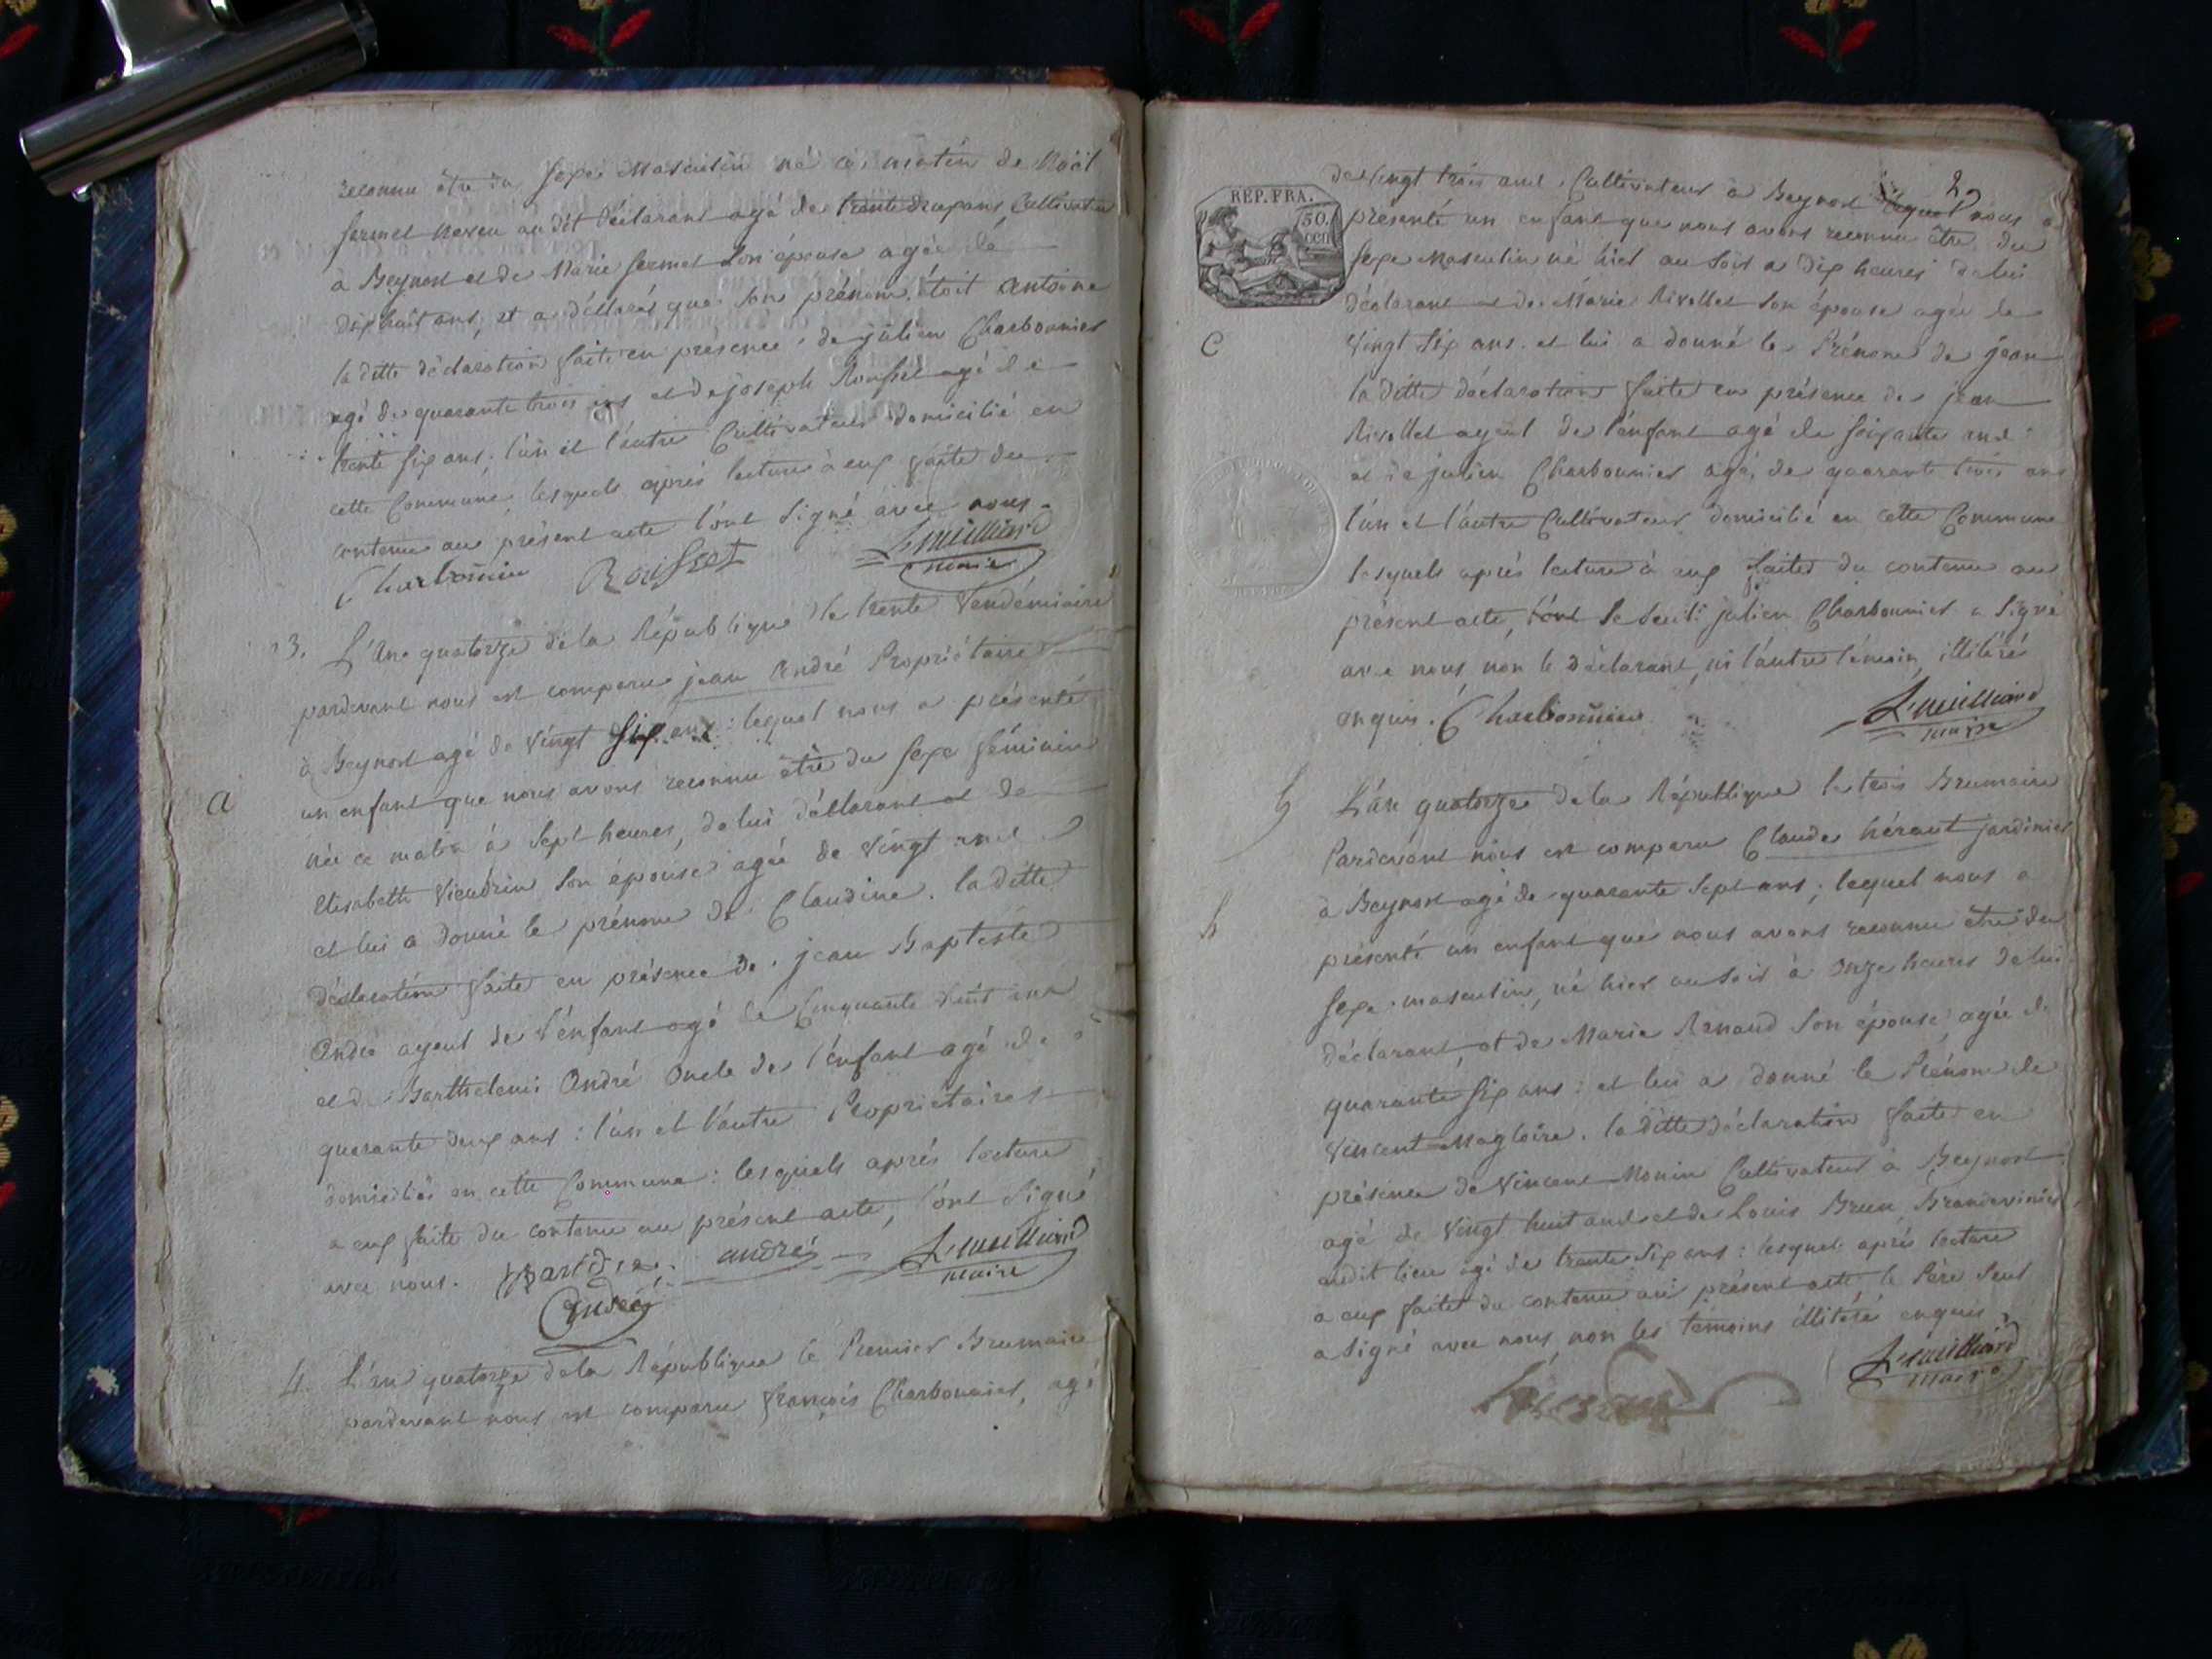 reconnu être du sexe Masculin né ce matin de Noël
sermet neveu au dit déclarant agé de trente deux ans, Cultivateur
à Beynost et de Marie sermet son épouse agée de
dix huit ans; et a déclaré que son prénom étoit antoine
la ditte déclaration faite en présence de julien Charbonnier
agé de quarante trois ans et de joseph Rousset agé de
trente six ans; l'un et l'autre Cultivateur domicilié en
cette Commune, lesquels après lecture à eux faite du
contenu au présent acte l'ont signé avec nous.
Charbonnier Rousset
maire
3. L'An quatorze de la République le trente Vendémiaire
pardevant nous est comparu jean André Propriétaire
à Beynost agé de vingt six ans: lequel nous a présenté
un enfant que nous avons reconnu être du sexe féminin
a
née ce matin à sept heures, de lui déclarant et de
Elisabeth son épouse agée de vingt ans
et lui a donné le prénom de Claudine. la ditte
déclaration faite en présence de jean Baptiste
André ayeul de l'enfant agé de Cinquante huit ans
et de Barthelemi André Oncle de l'enfant agé de
quarante deux ans: l'un et l'autre Propriétaires
domiciliés en cette Commune: lesquels après lecture
a eux faite du contenu au présent acte, l'ont signé
avec nous. andré
maire
André
4. L'an quatorze de la République le Premier Brumaire
pardevant nous est comparu françois Charbonnier, agé
2
de vingt trois ans, Cultivateur à Beynost lequel nous a
REP. FRA.
50.
cen
présenté un enfant que nous avons reconnu être du
sexe Masculin né hier au soir a dix heures de lui
déclarant et de Marie Rivollet son épouse agée de
C
vingt six ans. et lui a donné le Prénom de jean
la ditte déclaration faite en présence de jean
Rivollet ayeul de l'enfant agé de soixante ans
et de julien Charbonnier agé de quarante trois ans
l'un et l'autre Cultivateur domicilié en cette Commune
lesquels après lecture à eux faite du contenu au
présent acte, l'ont le seul julien Charbonnier a signé
avec nous non le déclarant, ni l'autre témoin, illitéré
enquis. Charbonnier
maire
5 L'an quatorze de la République le trois Brumaire
Pardevant nous est comparu Claude héraut jardinier
h
à Beynost agé de quarante sept ans; lequel nous a
présenté un enfant que nous avons reconnu être du
sexe masculin, né hier au soir à onze heures de lui
déclarant, et de Marie Renaud son épouse agée de
quarante six ans: et lui a donné le Prénom de
Vincent Magloire. la ditte déclaration faite en
présence de Vincent Monin Cultivateur à Beynost
agé de vingt huit ans et de Louis Brun
audit lieu agé de trente six ans: lesquels après lecture
a eux faite du contenu au présent acte, le Père seul
a signé avec nous, non les témoins illitéré enquis
maire